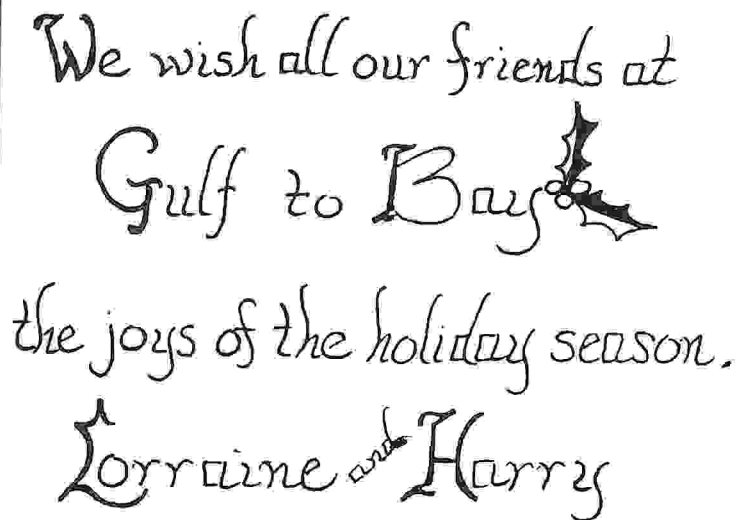 We wish all our friends at
Gulf to Bay
the joys of the holiday season.
Lorraine and Harry